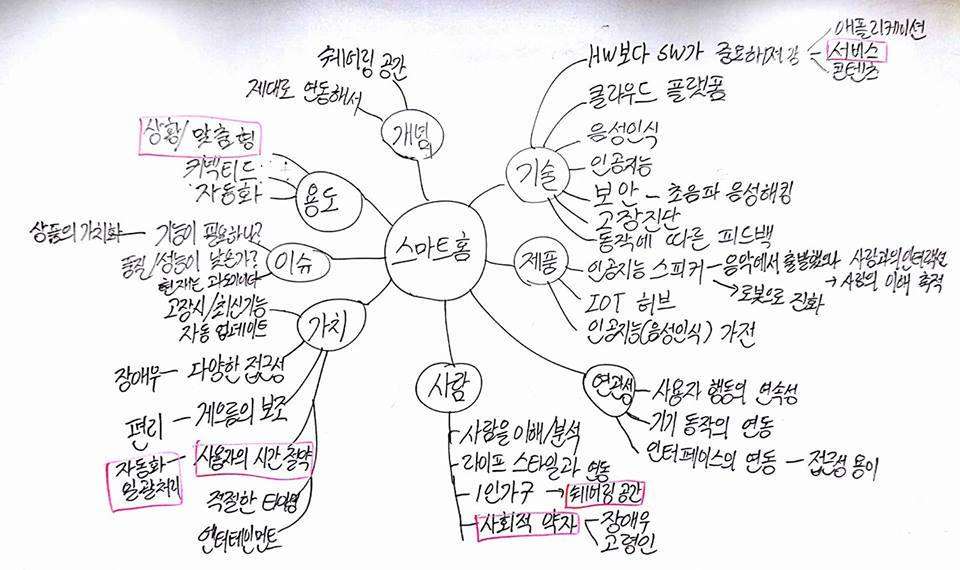 스마트홈
개념
쉐어링 공간
제대로 연동해서
기술
HW보다 SW가 중요해/저장
애플리케이션
서비스
콘텐츠
클라우드 플랫폼
음성인식
인공지능
보안 - 초음파 음성해킹
고장진단
동작에 따른 피드백
제품
인공지능 스피커 - 음악에서 출발했으나 사람과의 인터랙션
→ 로봇으로 진화
→ 사람의 이해 축적
IOT 허브
인공지능(음성인식) 가전
연관성
사용자 행동의 연속성
기기 동작의 연동
인터페이스의 연동 - 접근성 용이
사람
사람을 이해/분석
라이프 스타일과 연동
1인가구 → 쉐어링 공간
사회적 약자
장애우
고령인
가치
장애우 - 다양한 접근성
편리 - 게으름의 보조
자동화
일괄처리
사용자의 시간 절약
적절한 타이밍
엔터테인먼트
이슈
상품의 가치화 - 기능이 필요하니?
품질/성능이 낮은가?
현재는 과도기이다
고장시/최신기능
자동 업데이트
용도
상황/맞춤형
커넥티드
자동화